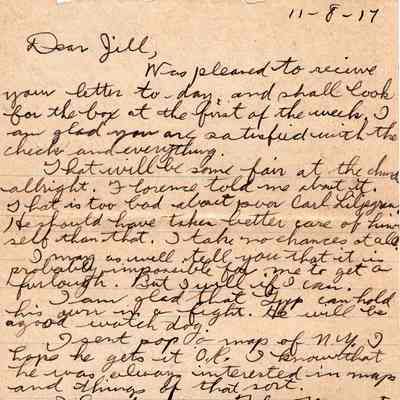 11-8-17
Dear Jill,
Was pleased to recieve
your letter to-day and shall look
for the box at the first of the week. I
am glad you are satisfied with the
checks and everything.
That will be some fair at the church
allright. Florence told me about it.
That is too bad about poor Carl Lilygren.
He should have taken better care of him
self than that. I take no chances at all.
I may as well tell you that it is
probably impossible for me to get a
furlough. But I will if I can.
I am glad that can hold
his own in a fight. He will be
a good watch dog.
I sent pop a map of N.Y. I
hope he gets it O.K. I know that
he was always interested in maps
and things of that sort.